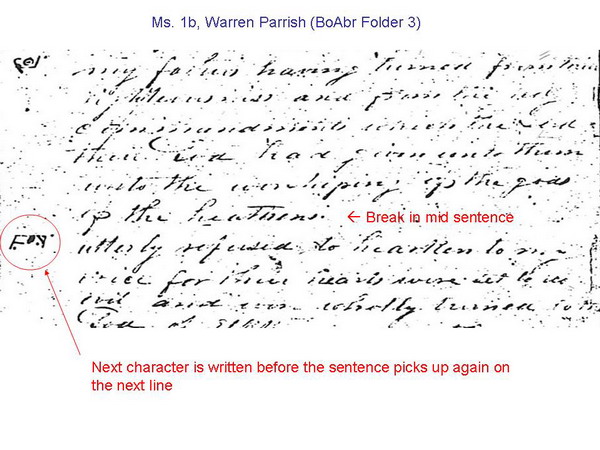 Ms. 1b, Warren Parrish (BoAbr Folder 3)
my fathers having turned from their
righteousness and from the holy
commandments which the Lord
their God had given unto them
unto the worshiping of the gods
of the heathens. ← Break in mid sentence
utterly refused to hearken to my
voice for their hearts were set to do
evil and were wholly turned to the
God of
Next character is written before the sentence picks up again on
the next line